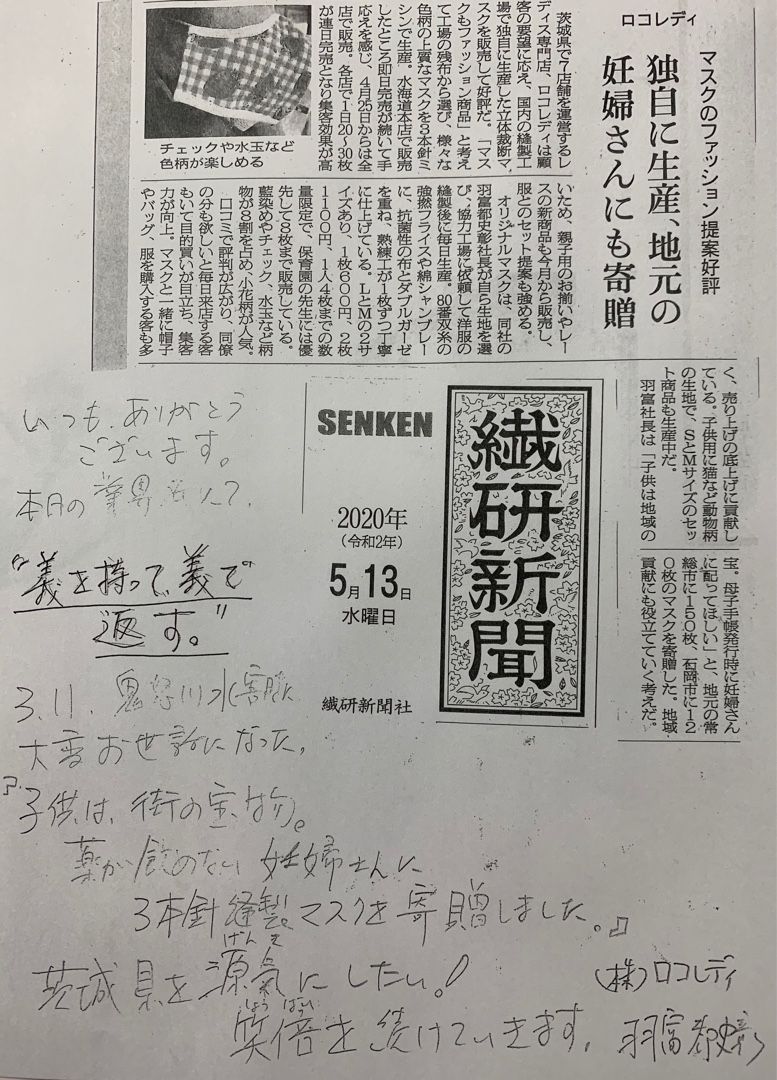 ロコレディ
マスクのファッション提案好評
独自に生産、地元の
妊婦さんにも寄贈
チェックや水玉など
色柄が楽しめる
茨城県で7店舗を運営するレ
ディス専門店、ロコレディは顧
客の要望に応え、国内の縫製工
場で独自に生産した立体裁断マ
スクを販売して好評だ。「マス
クもファッション商品」と考え
て工場の残布から選び、様々な
色柄の上質なマスクを3本針ミ
シンで生産。水海道本店で販売
したところ即日完売が続いて手
応えを感じ、4月25日からは全
店で販売。各店で1日20〜30枚
が連日完売となり集客効果が高
いため、親子用のお揃いやレー
スの新商品も今月から販売し、
服とのセット提案も強める。
オリジナルマスクは、同社の
羽富都史彰社長が自ら生地を選
び、協力工場に依頼して洋服の
縫製後に毎日生産。80番双糸の
強撚フライスや綿シャンブレー
に、抗菌性の布とダブルガーゼ
を重ね、熟練工が1枚ずつ丁寧
に仕上げている。LとMの2サ
イズあり、1枚600円、2枚
1100円、1人4枚までの数
量限定で、保育園の先生には優
先して8枚まで販売している。
藍染めやチェック、水玉など柄
物が8割を占め、小花柄が人気。
口コミで評判が広がり、同僚
の分も欲しいと毎日来店する客
もいて目的買いが目立ち、集客
力が向上。マスクと一緒に帽子
やバッグ、服を購入する客も多
く、売り上げの底上げに貢献し
ている。子供用に猫など動物柄
の生地で、SとMサイズのセッ
ト商品も生産中だ。
羽富社長は「子供は地域の
宝。母子手帳発行時に妊婦さん
に配ってほしい」と、地元の常
総市に150枚、石岡市に12
0枚のマスクを寄贈した。地域
貢献にも役立てていく考えだ。
SENKEN
繊研新聞
2020年
(令和2年)
5月13日
水曜日
繊研新聞社
いつも、ありがとう
ございます。
本日の業界
"義を持って義で
返す。"
3.11. 鬼怒川水害時に
大変お世話になった。
『子供は、街の宝物。
薬が飲めない妊婦さんに
3本針縫製マスクを寄贈しました。』
げんき
茨城県を源氣にしたい!
しょうばい
笑倍を続けていきます。
(株)ロコレディ
羽富都史彰